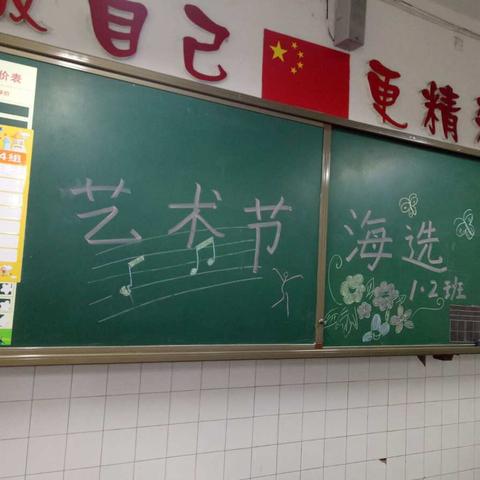 做自己 更精
价表
4组
艺术节 海选
1·2班